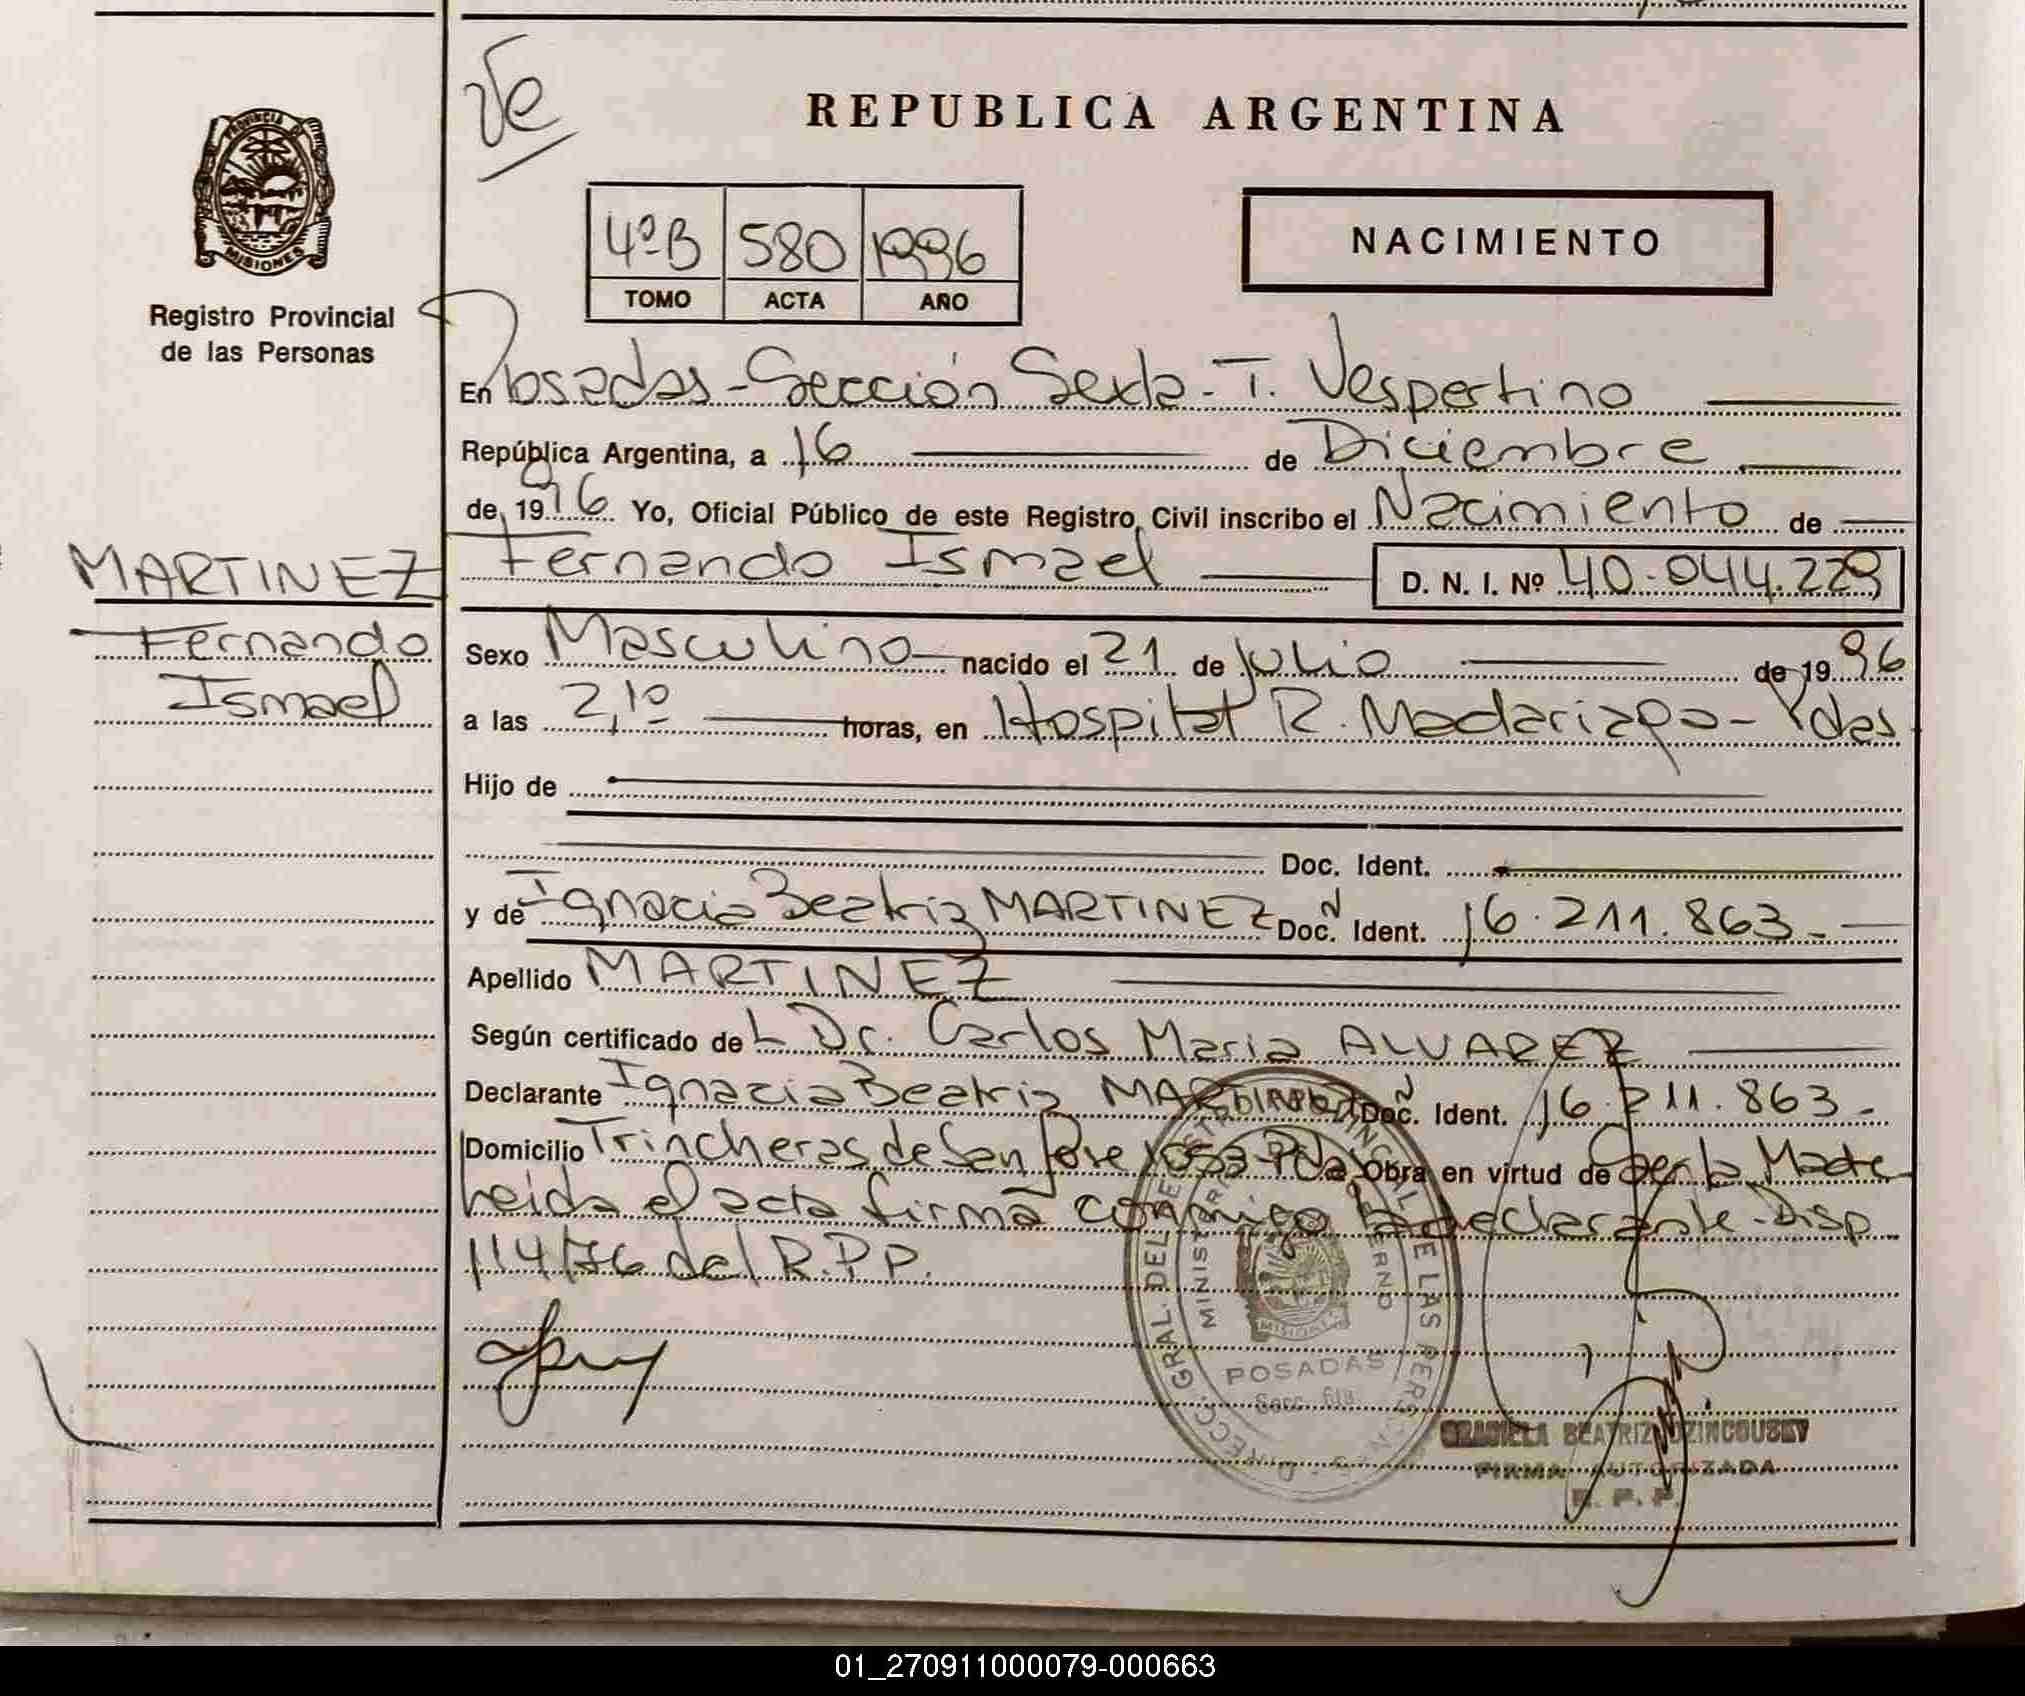 REPUBLICA ARGENTINA
PROVINCIA DE
MISIONES
Registro Provincial
de las Personas
4º B 580 1996
TOMO ACTA AÑO
NACIMIENTO
En Posadas - Sección Sexta - T. Vespertino
República Argentina, a 16 de Diciembre
de 1996 Yo, Oficial Público de este Registro Civil inscribo el Nacimiento de
MARTINEZ
Fernando
Ismael
Fernando Ismael D. N. I. Nº 40.044.229
Sexo Masculino nacido el 21 de Julio de 1996
a las 2,10 horas, en Hospital R. Madariaga - Pdas
Hijo de
Doc. Ident.
y de Ignacia Beatriz MARTINEZ Doc. Ident. 16.211.863.-
Apellido MARTINEZ
Según certificado de L Dr. Carlos Maria ALVAREZ
Declarante Ignacia Beatriz Doc. Ident. 16.211.863-
Domicilio Trincheras de San Jose Obra en virtud de Ser la Madre
Leida el acta firma conmigo la declarante - Disp
114/76 del R.P.P.
DIRECC. GRAL. DEL DE LAS PERSONAS
POSADAS
Secc. 6ta
GRACIELA BEATRIZ
FIRMA AUTORIZADA
R. P. P.
01_270911000079-000663